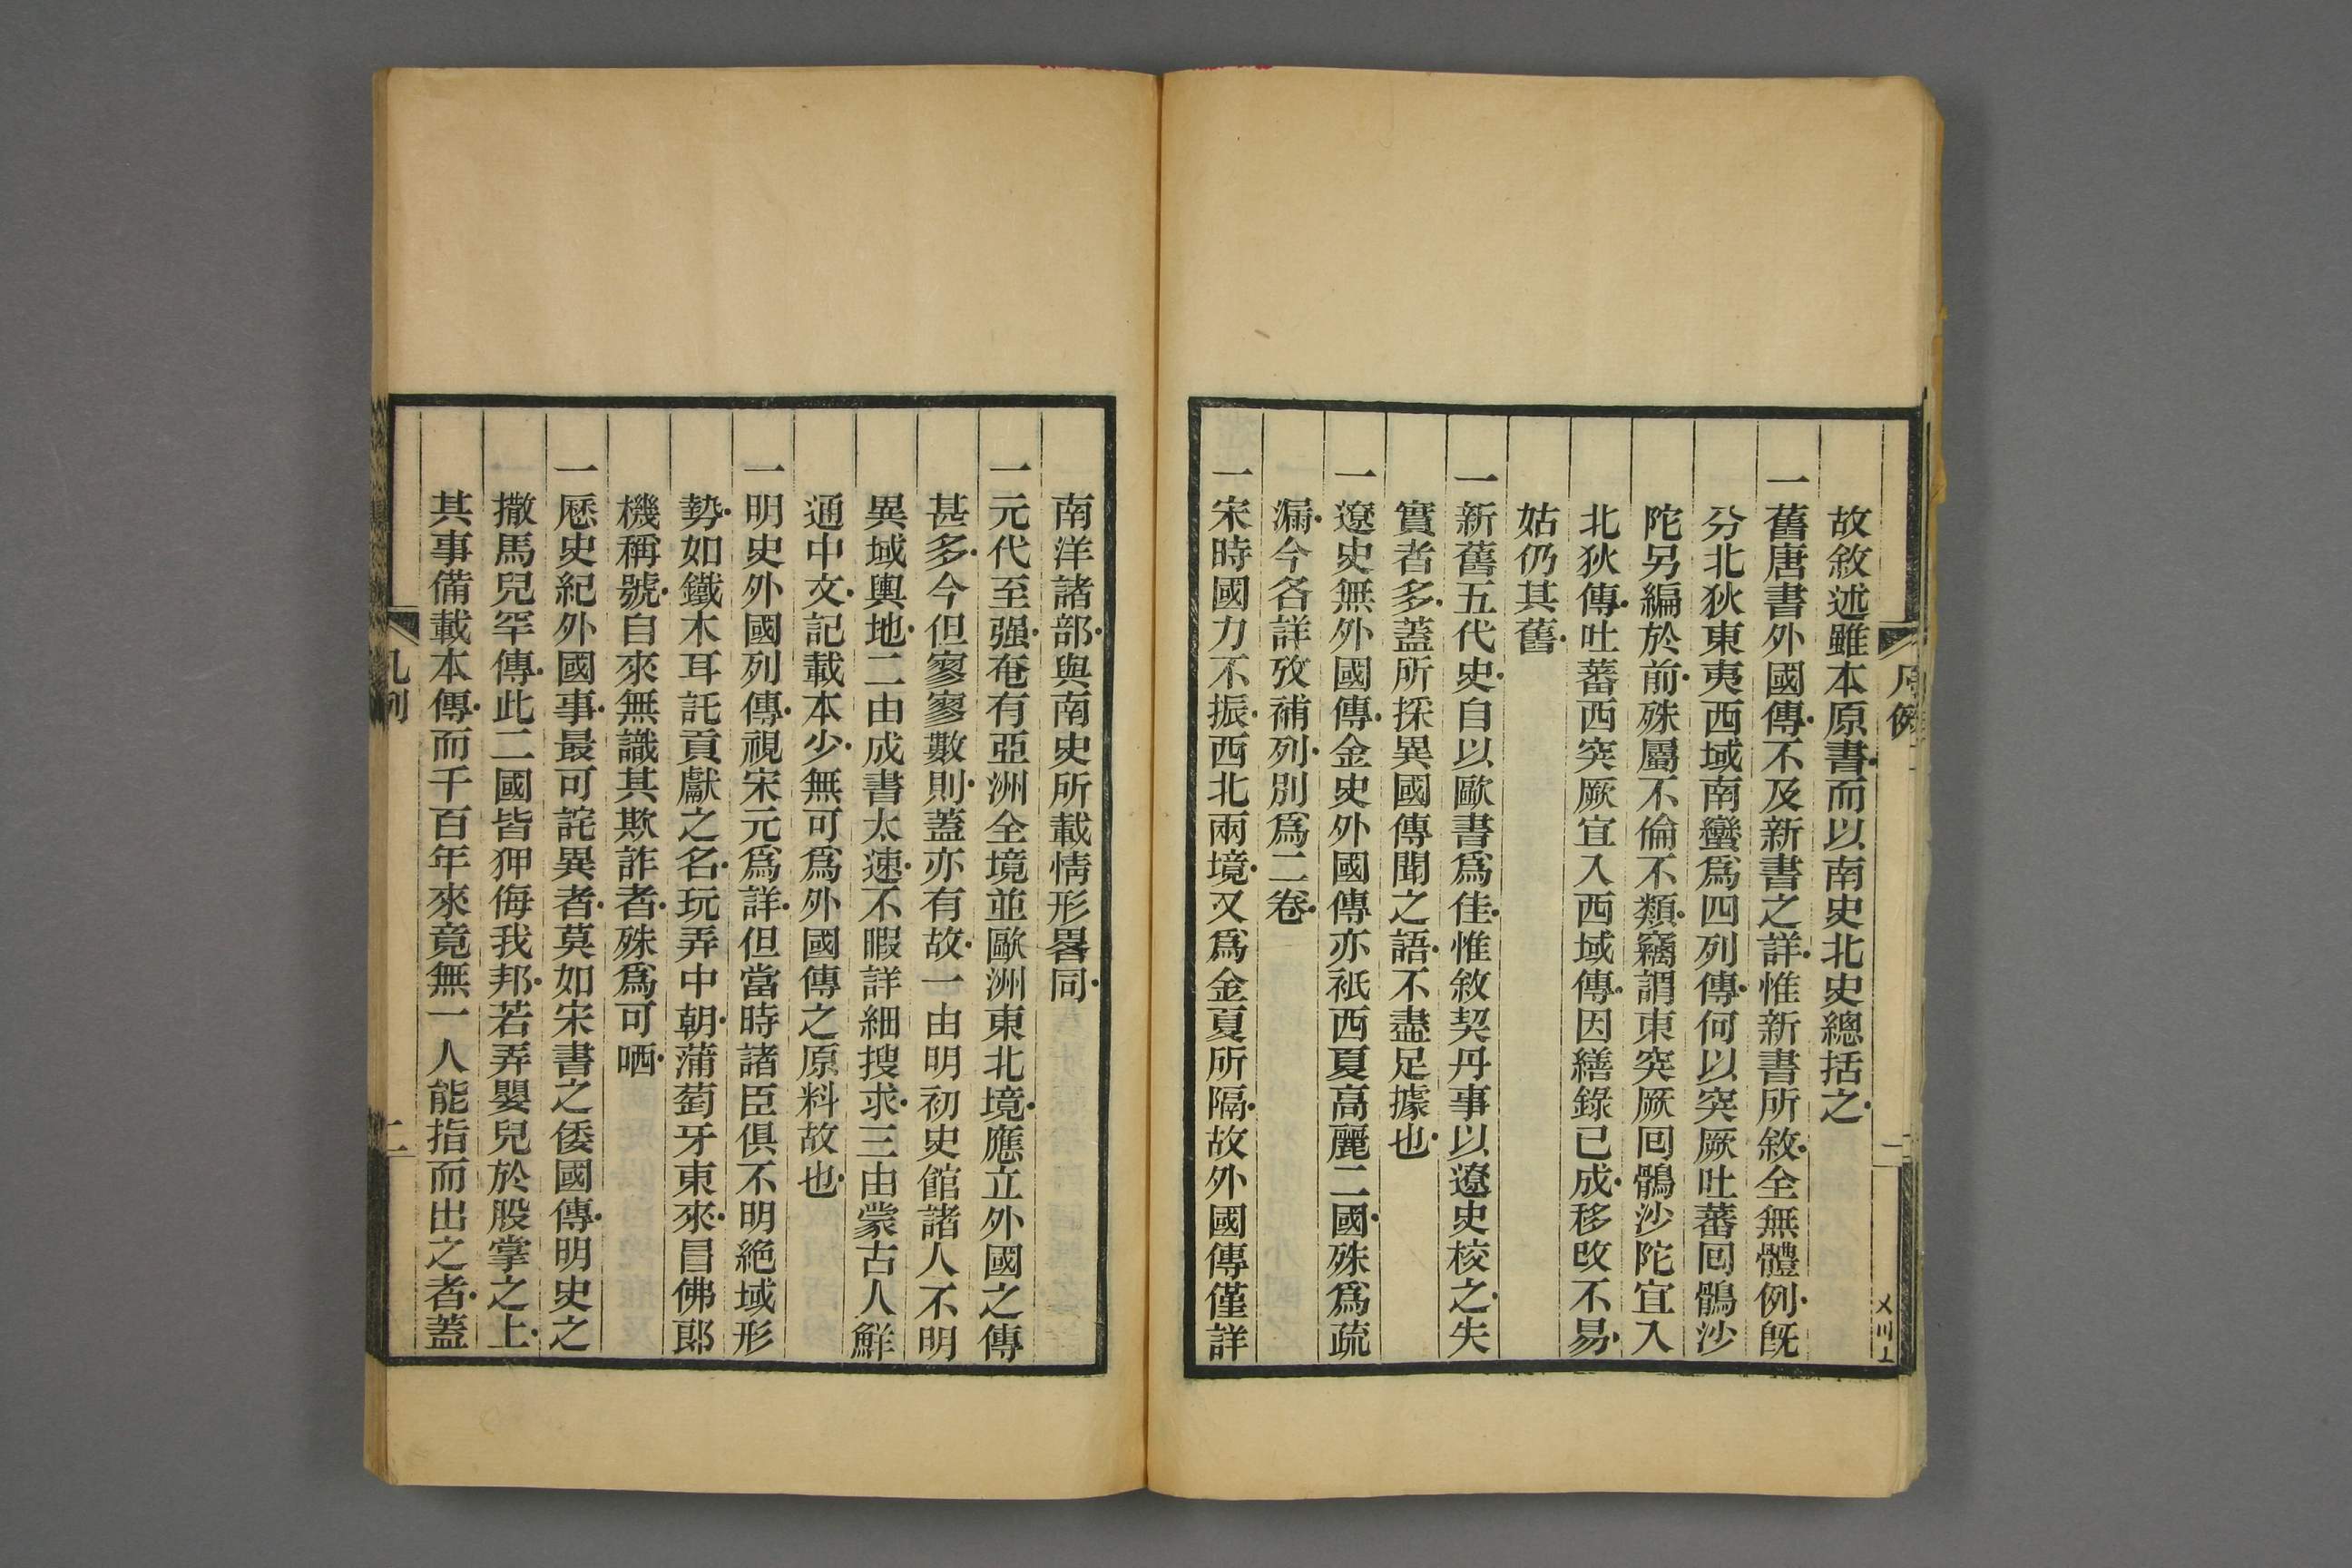 凡例
一
〤〣〦
故敘述雖本原書而以南史北史總括之
一舊唐書外國傳不及新書之詳惟新書所敘全無體例既
分北狄東夷西域南蠻爲四列傳何以突厥吐蕃回鶻沙
陀另編於前殊屬不倫不類竊謂東突厥回鶻沙陀宜入
北狄傳吐蕃西突厥宜入西域傳因繕錄已成移改不易
姑仍其舊
一新舊五代史自以歐書爲佳惟敘契丹事以遼史校之失
實者多蓋所採異國傳聞之語不盡足據也
一遼史無外國傳金史外國傳亦祇西夏高麗二國殊爲疏
漏今各詳攷補列別爲二卷
一宋時國力不振西北兩境又爲金夏所隔故外國傳僅詳
南洋諸部與南史所載情形畧同
一元代至强奄有亞洲全境並歐洲東北境應立外國之傳
甚多今但寥寥數則蓋亦有故一由明初史館諸人不明
異域輿地二由成書太速不暇詳細搜求三由蒙古人鮮
通中文記載本少無可爲外國傳之原料故也
一明史外國列傳視宋元爲詳但當時諸臣俱不明絕域形
勢如鐵木耳託貢獻之名玩弄中朝蒲萄牙東來冒佛郎
機稱號自來無識其欺詐者殊爲可哂
一歷史紀外國事最可詫異者莫如宋書之倭國傳明史之
撒馬兒罕傳此二國皆狎侮我邦若弄嬰兒於股掌之上
其事備載本傳而千百年來竟無一人能指而出之者蓋
凡例
二